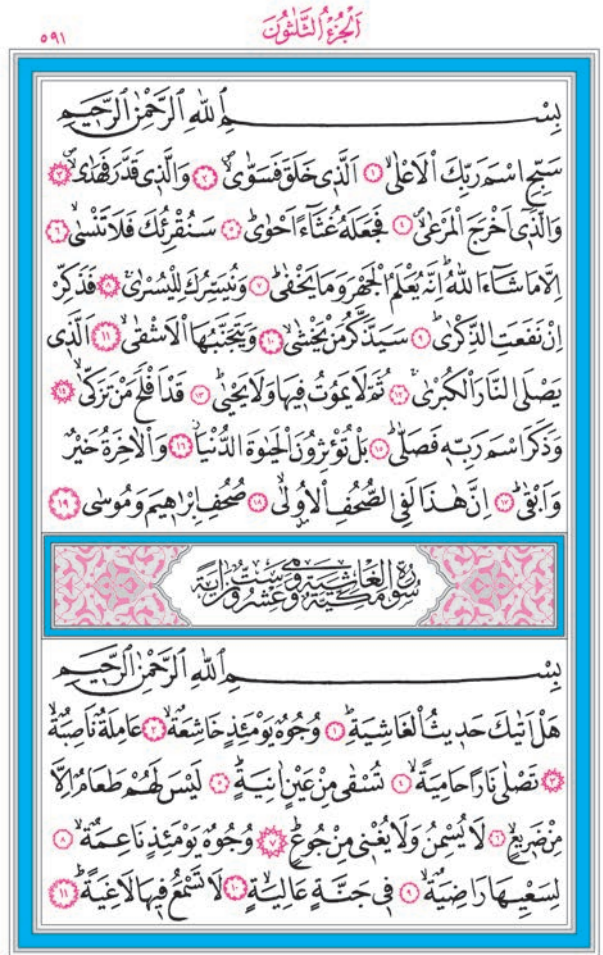 اَلْجُزْءُ الثَّلٰثُونَ
٥٩١
بِسْمِ اللّٰهِ الرَّحْمٰنِ الرَّحِيمِ
سَبِّحِ اسْمَ رَبِّكَ الْاَعْلٰىۙ ﴿١﴾ اَلَّذٖى خَلَقَ فَسَوّٰىۙ ﴿٢﴾ وَالَّذٖى قَدَّرَ فَهَدٰىۙ ﴿٣﴾
وَالَّذٖٓى اَخْرَجَ الْمَرْعٰىۙ ﴿٤﴾ فَجَعَلَهُ غُثَٓاءً اَحْوٰىۜ ﴿٥﴾ سَنُقْرِئُكَ فَلَا تَنْسٰىۙ ﴿٦﴾
اِلَّا مَا شَٓاءَ اللّٰهُۜ اِنَّهُ يَعْلَمُ الْجَهْرَ وَمَا يَخْفٰىۜ ﴿٧﴾ وَنُيَسِّرُكَ لِلْيُسْرٰىۚ ﴿٨﴾ فَذَكِّرْ
اِنْ نَفَعَتِ الذِّكْرٰىۜ ﴿٩﴾ سَيَذَّكَّرُ مَنْ يَخْشٰىۙ ﴿١٠﴾ وَيَتَجَنَّبُهَا الْاَشْقٰىۙ ﴿١١﴾ اَلَّذٖى
يَصْلَى النَّارَ الْكُبْرٰىۚ ﴿١٢﴾ ثُمَّ لَا يَمُوتُ فٖيهَا وَلَا يَحْيٰىۜ ﴿١٣﴾ قَدْ اَفْلَحَ مَنْ تَزَكّٰىۙ ﴿١٤﴾
وَذَكَرَ اسْمَ رَبِّهٖ فَصَلّٰىۜ ﴿١٥﴾ بَلْ تُؤْثِرُونَ الْحَيٰوةَ الدُّنْيَاۘ ﴿١٦﴾ وَالْاٰخِرَةُ خَيْرٌ
وَاَبْقٰىۜ ﴿١٧﴾ اِنَّ هٰذَا لَفِى الصُّحُفِ الْاُو۫لٰىۙ ﴿١٨﴾ صُحُفِ اِبْرٰهٖيمَ وَمُوسٰى ﴿١٩﴾
سُورَةُ الْغَاشِيَةِ مَكِّيَّةٌ وَهِىَ سِتٌّ وَعِشْرُونَ اٰيَةً
بِسْمِ اللّٰهِ الرَّحْمٰنِ الرَّحِيمِ
هَلْ اَتٰيكَ حَدٖيثُ الْغَاشِيَةِۜ ﴿١﴾ وُجُوهٌ يَوْمَئِذٍ خَاشِعَةٌۙ ﴿٢﴾ عَامِلَةٌ نَاصِبَةٌۙ
﴿٣﴾ تَصْلٰى نَارًا حَامِيَةًۙ ﴿٤﴾ تُسْقٰى مِنْ عَيْنٍ اٰنِيَةٍۜ ﴿٥﴾ لَيْسَ لَهُمْ طَعَامٌ اِلَّا
مِنْ ضَرٖيعٍۙ ﴿٦﴾ لَا يُسْمِنُ وَلَا يُغْنٖى مِنْ جُوعٍۜ ﴿٧﴾ وُجُوهٌ يَوْمَئِذٍ نَاعِمَةٌۙ ﴿٨﴾
لِسَعْيِهَا رَاضِيَةٌۙ ﴿٩﴾ فٖى جَنَّةٍ عَالِيَةٍۙ ﴿١٠﴾ لَا تَسْمَعُ فٖيهَا لَاغِيَةًۜ ﴿١١﴾